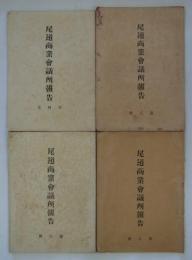 尾道商業會議所報告
尾道商業會議所報告
尾道商業會議所報告
尾道商業會議所報告